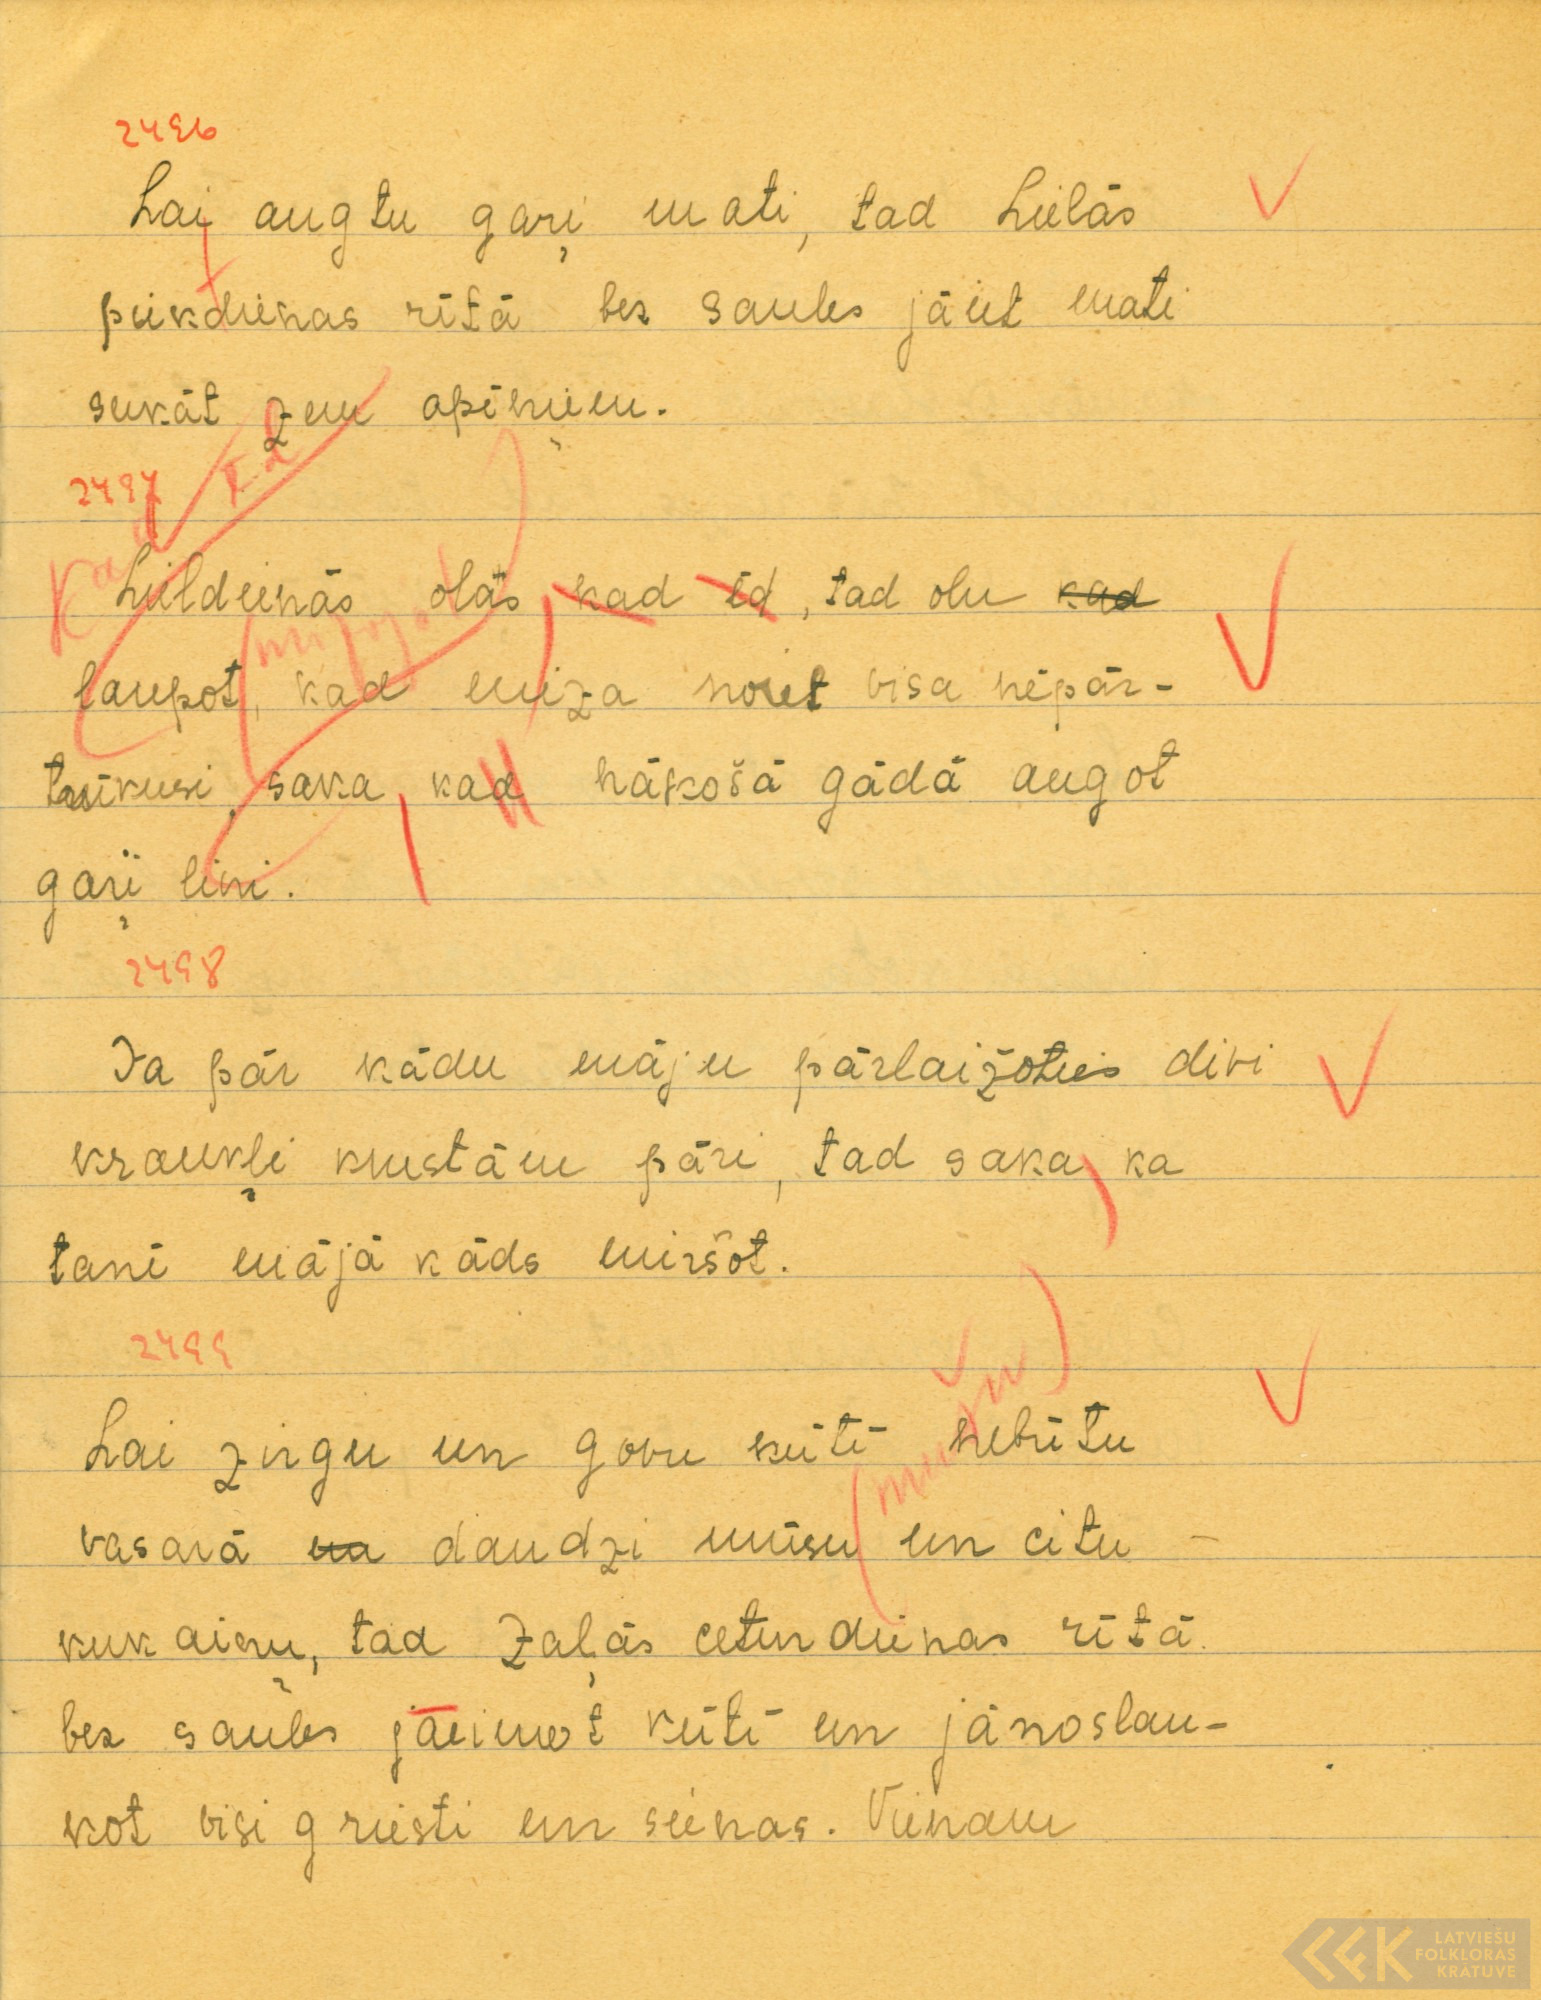 2496
Lai augtu gaŗi mati, tad Lielās
piekdienas rītā bez saules jāiet mati
sukāt zem apīņiem.
2497
Kad ēd
Lieldienās olas kad ēd, tad olu kad
(mizojot)
laupot, kad miza noiet visa nēpār-
trūkusi, saka, kad nākošā gādā augot
gaŗi lini.
2498
Ja pār kādu māju pārlaižoties divi
kraukļi krustām pāri, tad saka, ka
tanī mājā kāds miršot.
2499
Lai zirgu un govu kūtī nebūtu
(mušu)
vasarā na daudzi mūsu un citu
kukaiņu, tad Zaļās ceturdienas rītā
bez saules jāeimot kūtī un jānoslau-
kot visi griesti un sienas. Vienam
LATVIEŠU
FOLKLORAS
KRĀTUVE